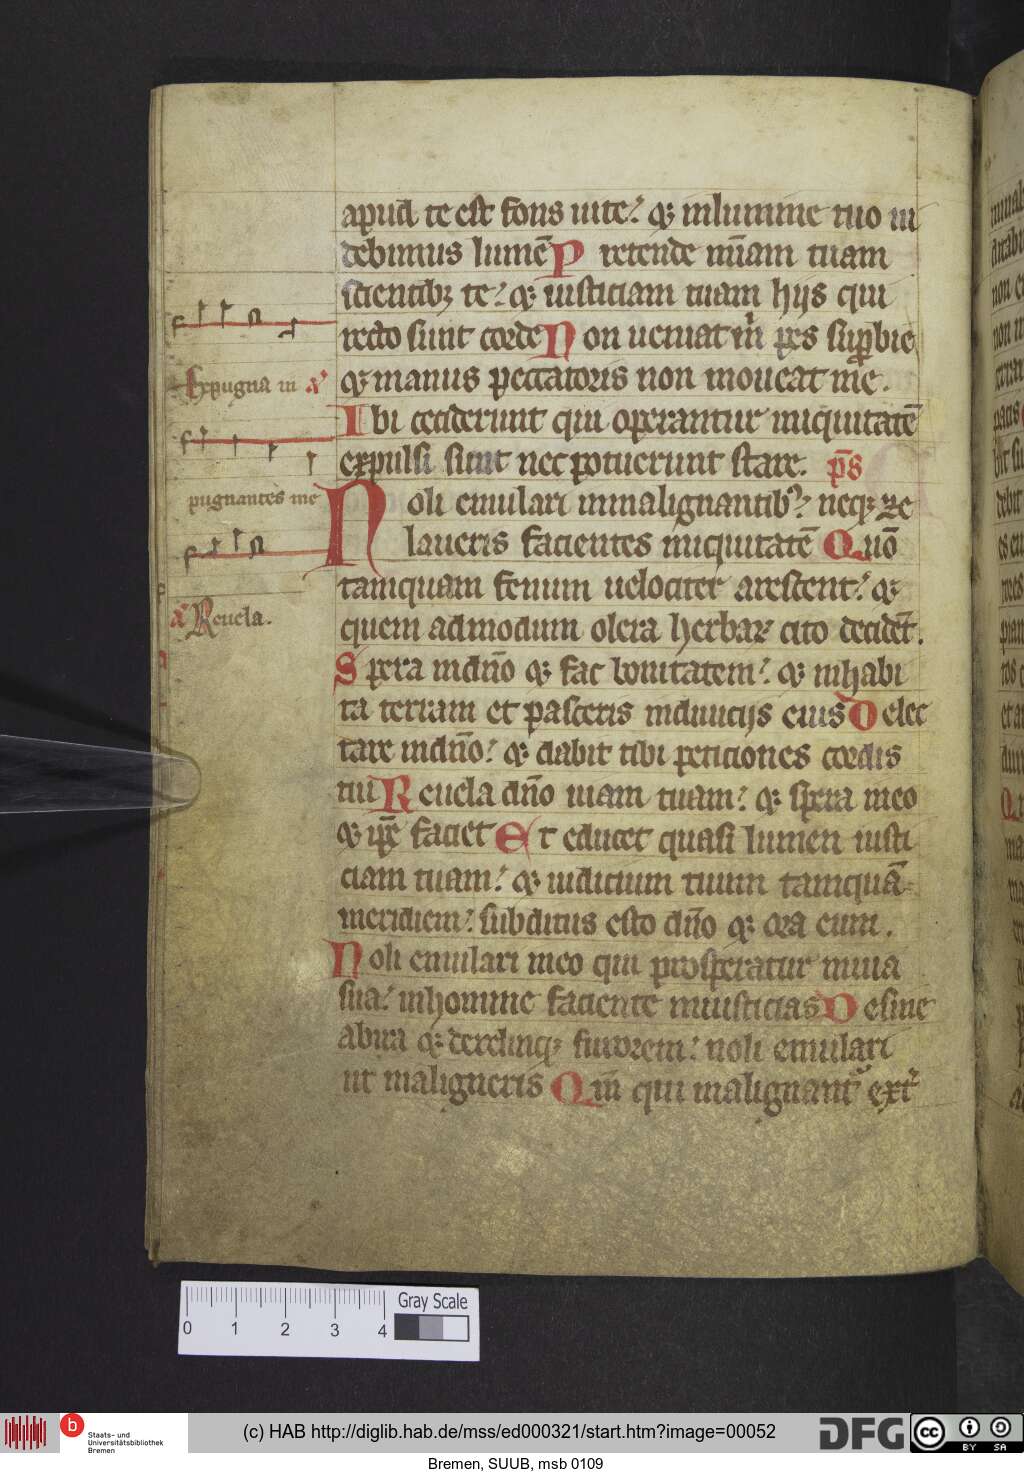 apud te est fons uite: ⁊ inlumine tuo ui
debimus lumē P retende mīam tuam
scientibꝫ te: ⁊ iusticiam tuam hijs qui
recto sunt corde N on ueniat m̄ pes suꝑbie
⁊ manus peccatoris non moueat me.
I bi ceciderunt qui operantur iniquitatē
expulsi sunt nec potuerunt stare. p̄s
N oli emulari inmalignantibꝰ: neqꝫ ze
laueris facientes iniquitatē Quō
tamquam fenum uelociter arescent: ⁊
quem admodum olera herbaꝝ cito decidēt.
S pera indn̄o ⁊ fac bonitatem: ⁊ inhabi
ta terram et pasceris indiuicijs eius D elec
tare indn̄o: ⁊ dabit tibi peticiones cordis
tui R euela dn̄o uiam tuam: ⁊ spera ineo
⁊ ip̄e faciet E t educet quasi lumen iusti
ciam tuam: ⁊ iudicium tuum tamquā
meridiem: subditus esto dn̄o ⁊ ora eum.
N oli emulari ineo qui prosperatur inuia
sua: inhomine faciente iniusticias D esine
abira ⁊ derelinqꝫ furorem: noli emulari
ut maligneris Qm̄ qui malignant᷑ ext᷑
Expugna in a᷑
pugnantes me
a᷑ Reuela.
0 1 2 3 4
Gray Scale
b
Staats- und
Universitätsbibliothek
Bremen
(c) HAB http://diglib.hab.de/mss/ed000321/start.htm?image=00052
DFG
cc BY SA
Bremen, SUUB, msb 0109